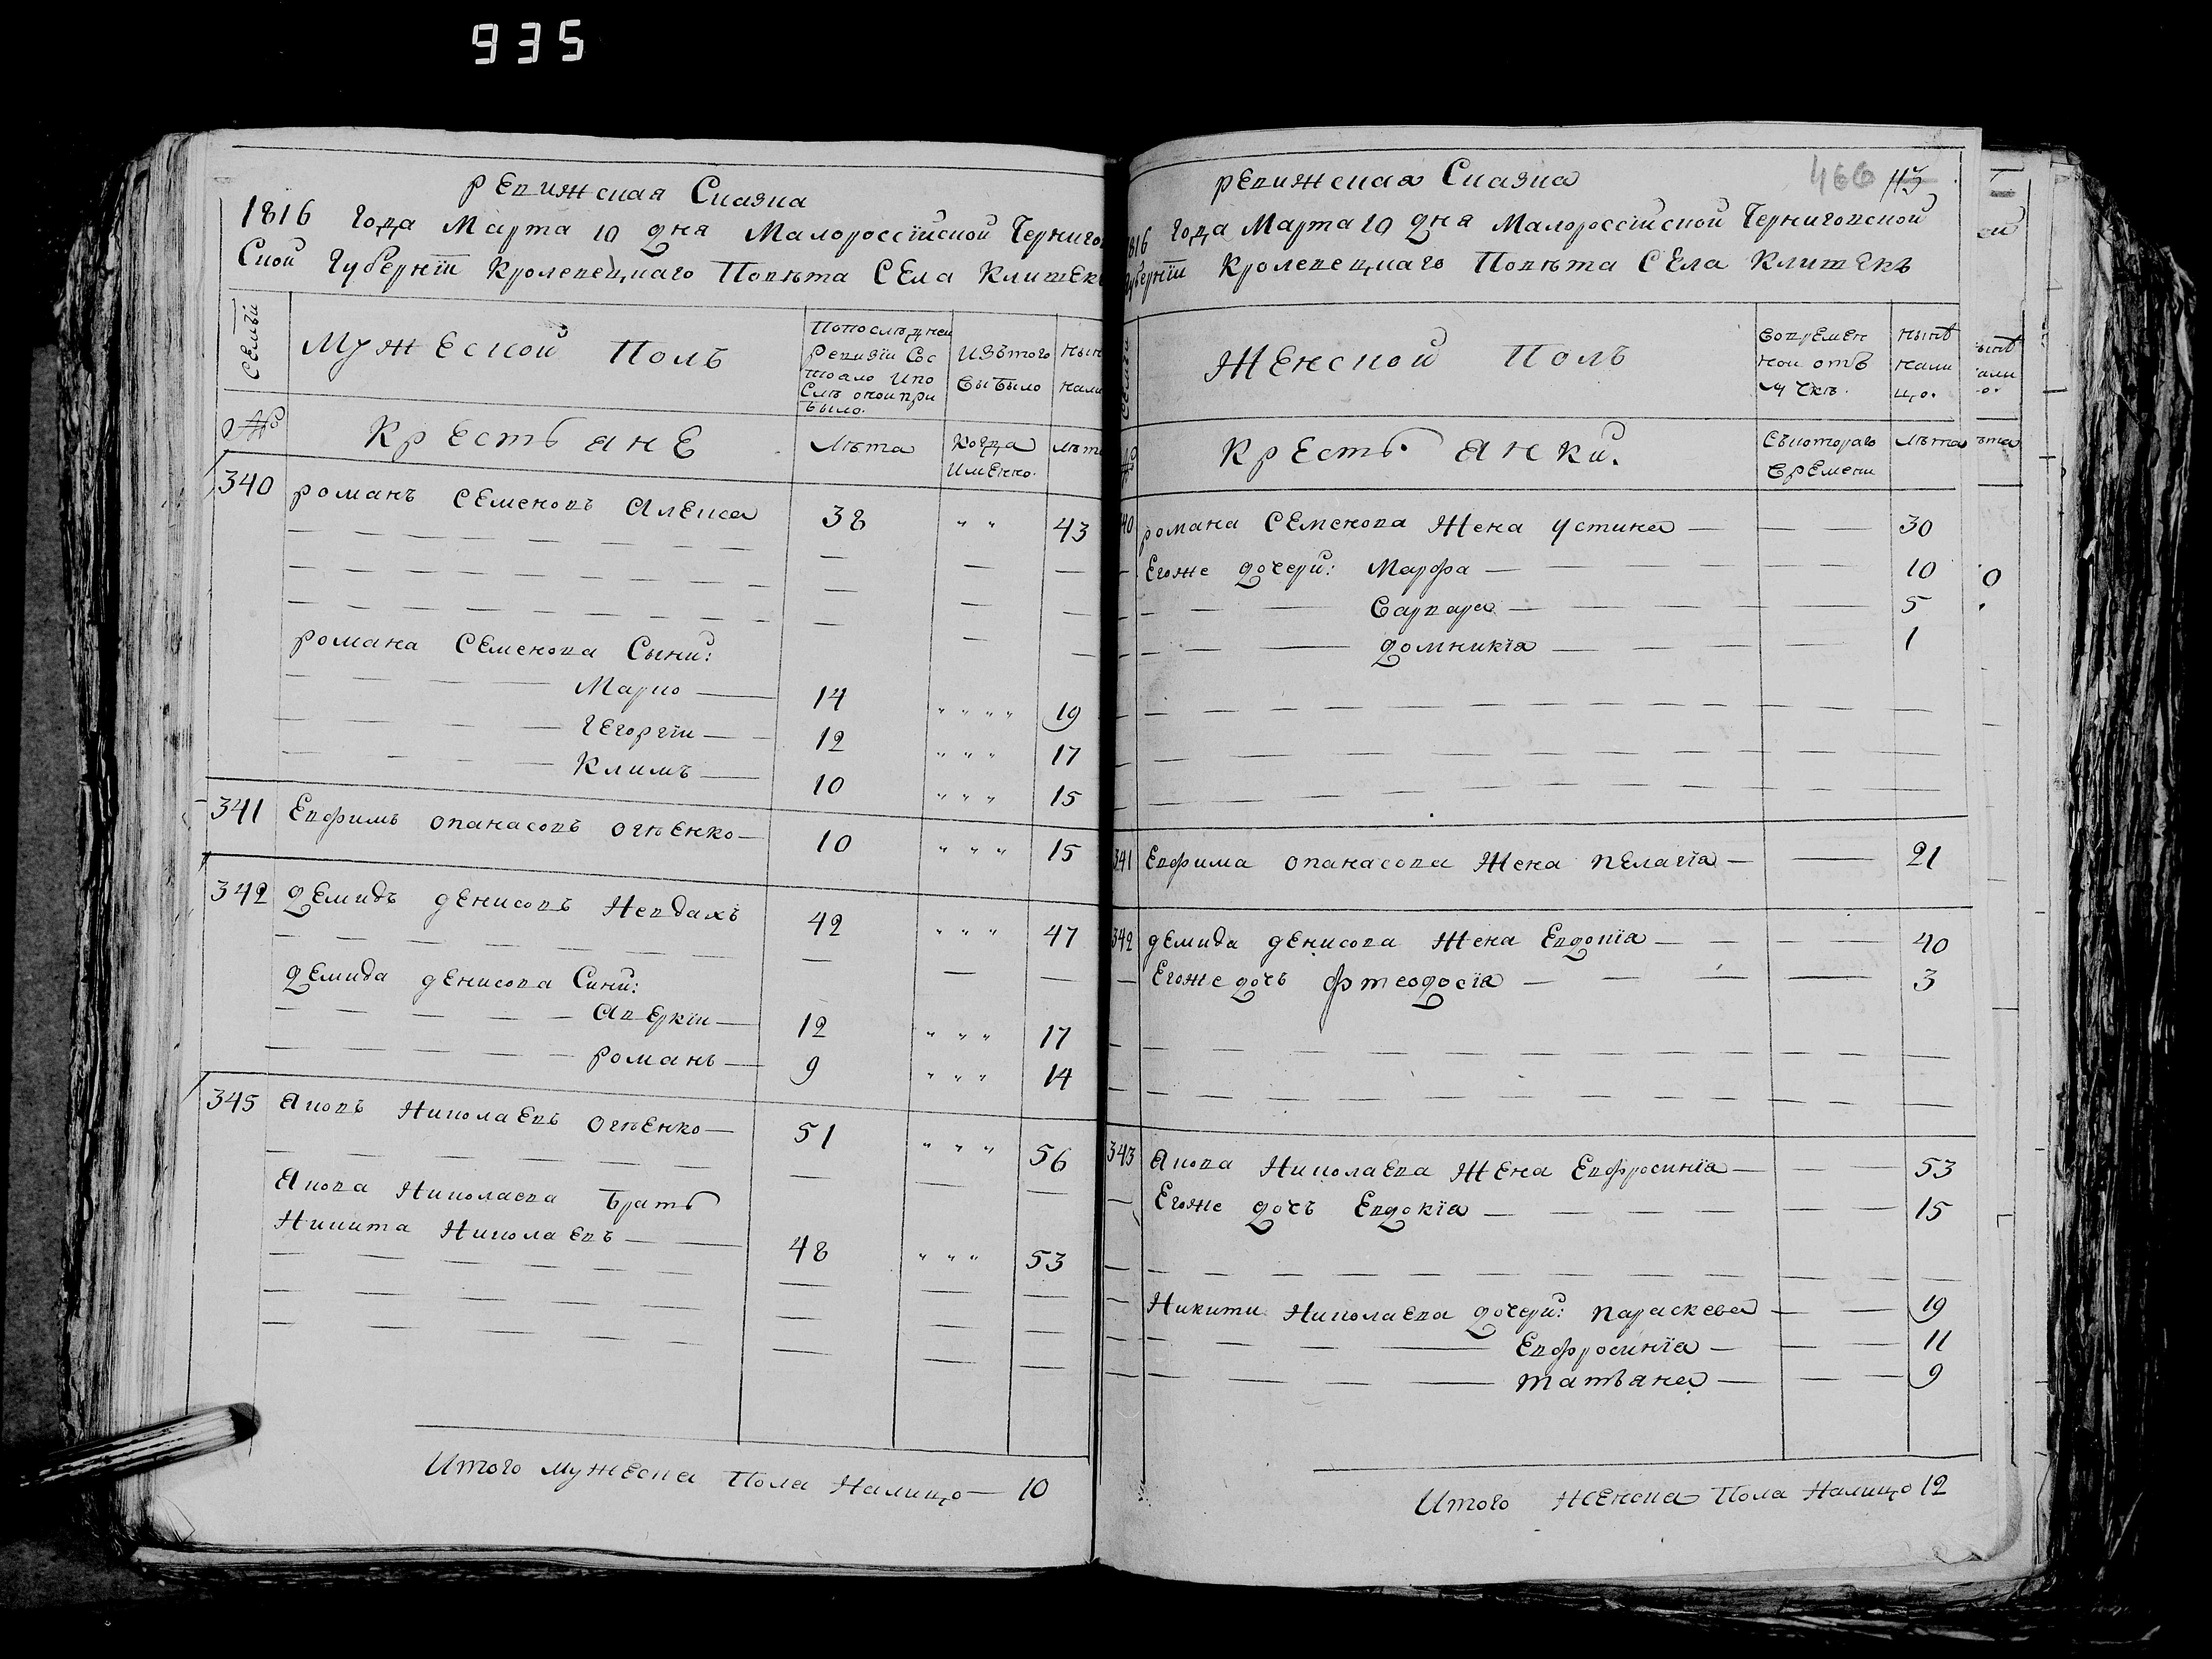 935
Ревижская Сказка
1816 года Марта 10 дня Малороссійской Черниго
Ской Губерніи Кролевецкаго Повѣта Села Клишек
Семьи
Мужеской Полъ
По последней
Ревизіи Сос
тоало и по
Слѣ оной при
было.
Изъ того
выбыло
Нын
нали
№
Крестьяне
Лѣта
Когда
имЕнно.
Лѣт
340 романъ Семеновъ Алекса 38 " " 43
романа Семенова Сыни:
Марко 14 " " " " 19
Георгіи 12 " " " 17
Климъ 10 " " " 15
341 Евфимъ опанасовъ огѣенко 10 " " " 15
342 демидъ денисовъ Невдахъ 42 " " " 47
демида денисова Сини:
Аверкіи 12 " " " 17
романъ 9 " " " 14
345 Яковъ Николаевъ Огѣенко 51 " " " 56
Якова Николаева братъ
Никита Николаевъ 48 " " " 53
Итого мужеска Пола Налицо 10
466 113
Ревижская Сказка
816 года Марта 10 дня Малороссійской Черниговской
Губерніи Кролевецкаго Повѣта Села Клишекъ
Семьи
Женской Полъ
Во времен
ной отъ
лучкѣ.
Нынѣ
нали
цо.
№
Крестьянки.
Съ котораго
времени
Лѣта
40 романа Семенова Жена Устина 30
Егоже дочери: Марфа 10
Варвара 5
домникіа 1
341 Евфима опанасова Жена пелагіа 21
342 демида денисова Жена Евдокіа 40
Егоже дочъ фтеодосіа 3
343 Якова Николаева Жена Евфросиніа 53
Егоже дочъ Евдокіа 15
Никити Николаева дочери: параскева 19
Евфросиніа 11
татъяна 9
Итого женска Пола Налицо 12